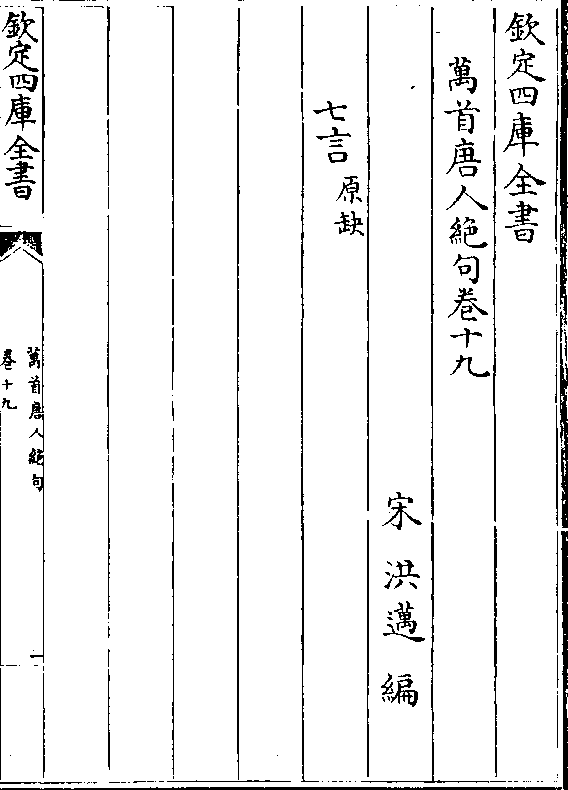 欽定四庫全書
萬首唐人絶句卷十九
宋洪邁編
七言原缺
欽定四庫全書
萬首唐人絶句
卷十九
一